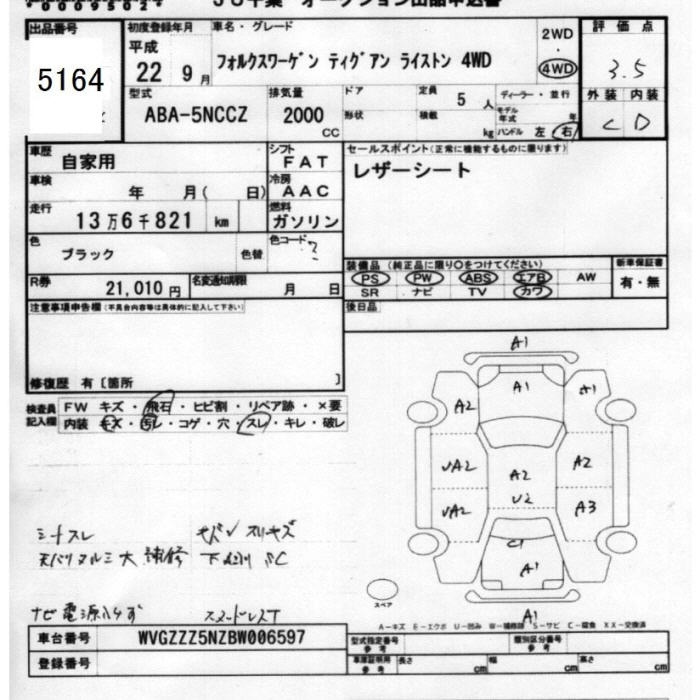 出品番号
5164
初度登録年月
平成
22 9月
車名・グレード
フォルクスワーゲン ティグアン ライストン 4WD
2WD
・
4WD
評価点
3.5
外装 内装
C D
型式
ABA-5NCCZ
排気量
2000
CC
ドア
形状
定員
5 人
積載
kg
ディーラー・並行
モデル年式 年
ハンドル 左 右
車歴
自家用
シフト
FAT
セールスポイント(正常に機能するものに限ります)
レザーシート
車検
年 月( 日)
冷房
AAC
走行
13万6千821 km
燃料
ガソリン
色
ブラック
色替
色コード
?
R券
21,010 円
名変通知期限
月 日
装備品 (純正品に限り○をつけてください)
PS PW ABS エアB AW
SR ナビ TV カワ
新車保証書
有・無
注意事項申告欄(不具合内容等は具体的に記入して下さい)
後日品
修復歴 有〔箇所 〕
検査員
記入欄
FW キズ・飛石・ヒビ割・リペア跡・×要
内装 キズ・汚レ・コゲ・穴・スレ・キレ・破レ
A1
A1
A1
A2
UA2
A2
A2
U2
UA2
A3
C1
A1
A1
スペア
シートスレ
A-キズ E-エクボ U-凹み W-補修跡 S-サビ C-腐食 XX-交換済
車台番号
WVGZZZ5NZBW006597
登録番号
型式指定番号
参考
類別区分番号
参考
車庫証明用
参考
長さ cm
幅 cm
高さ cm